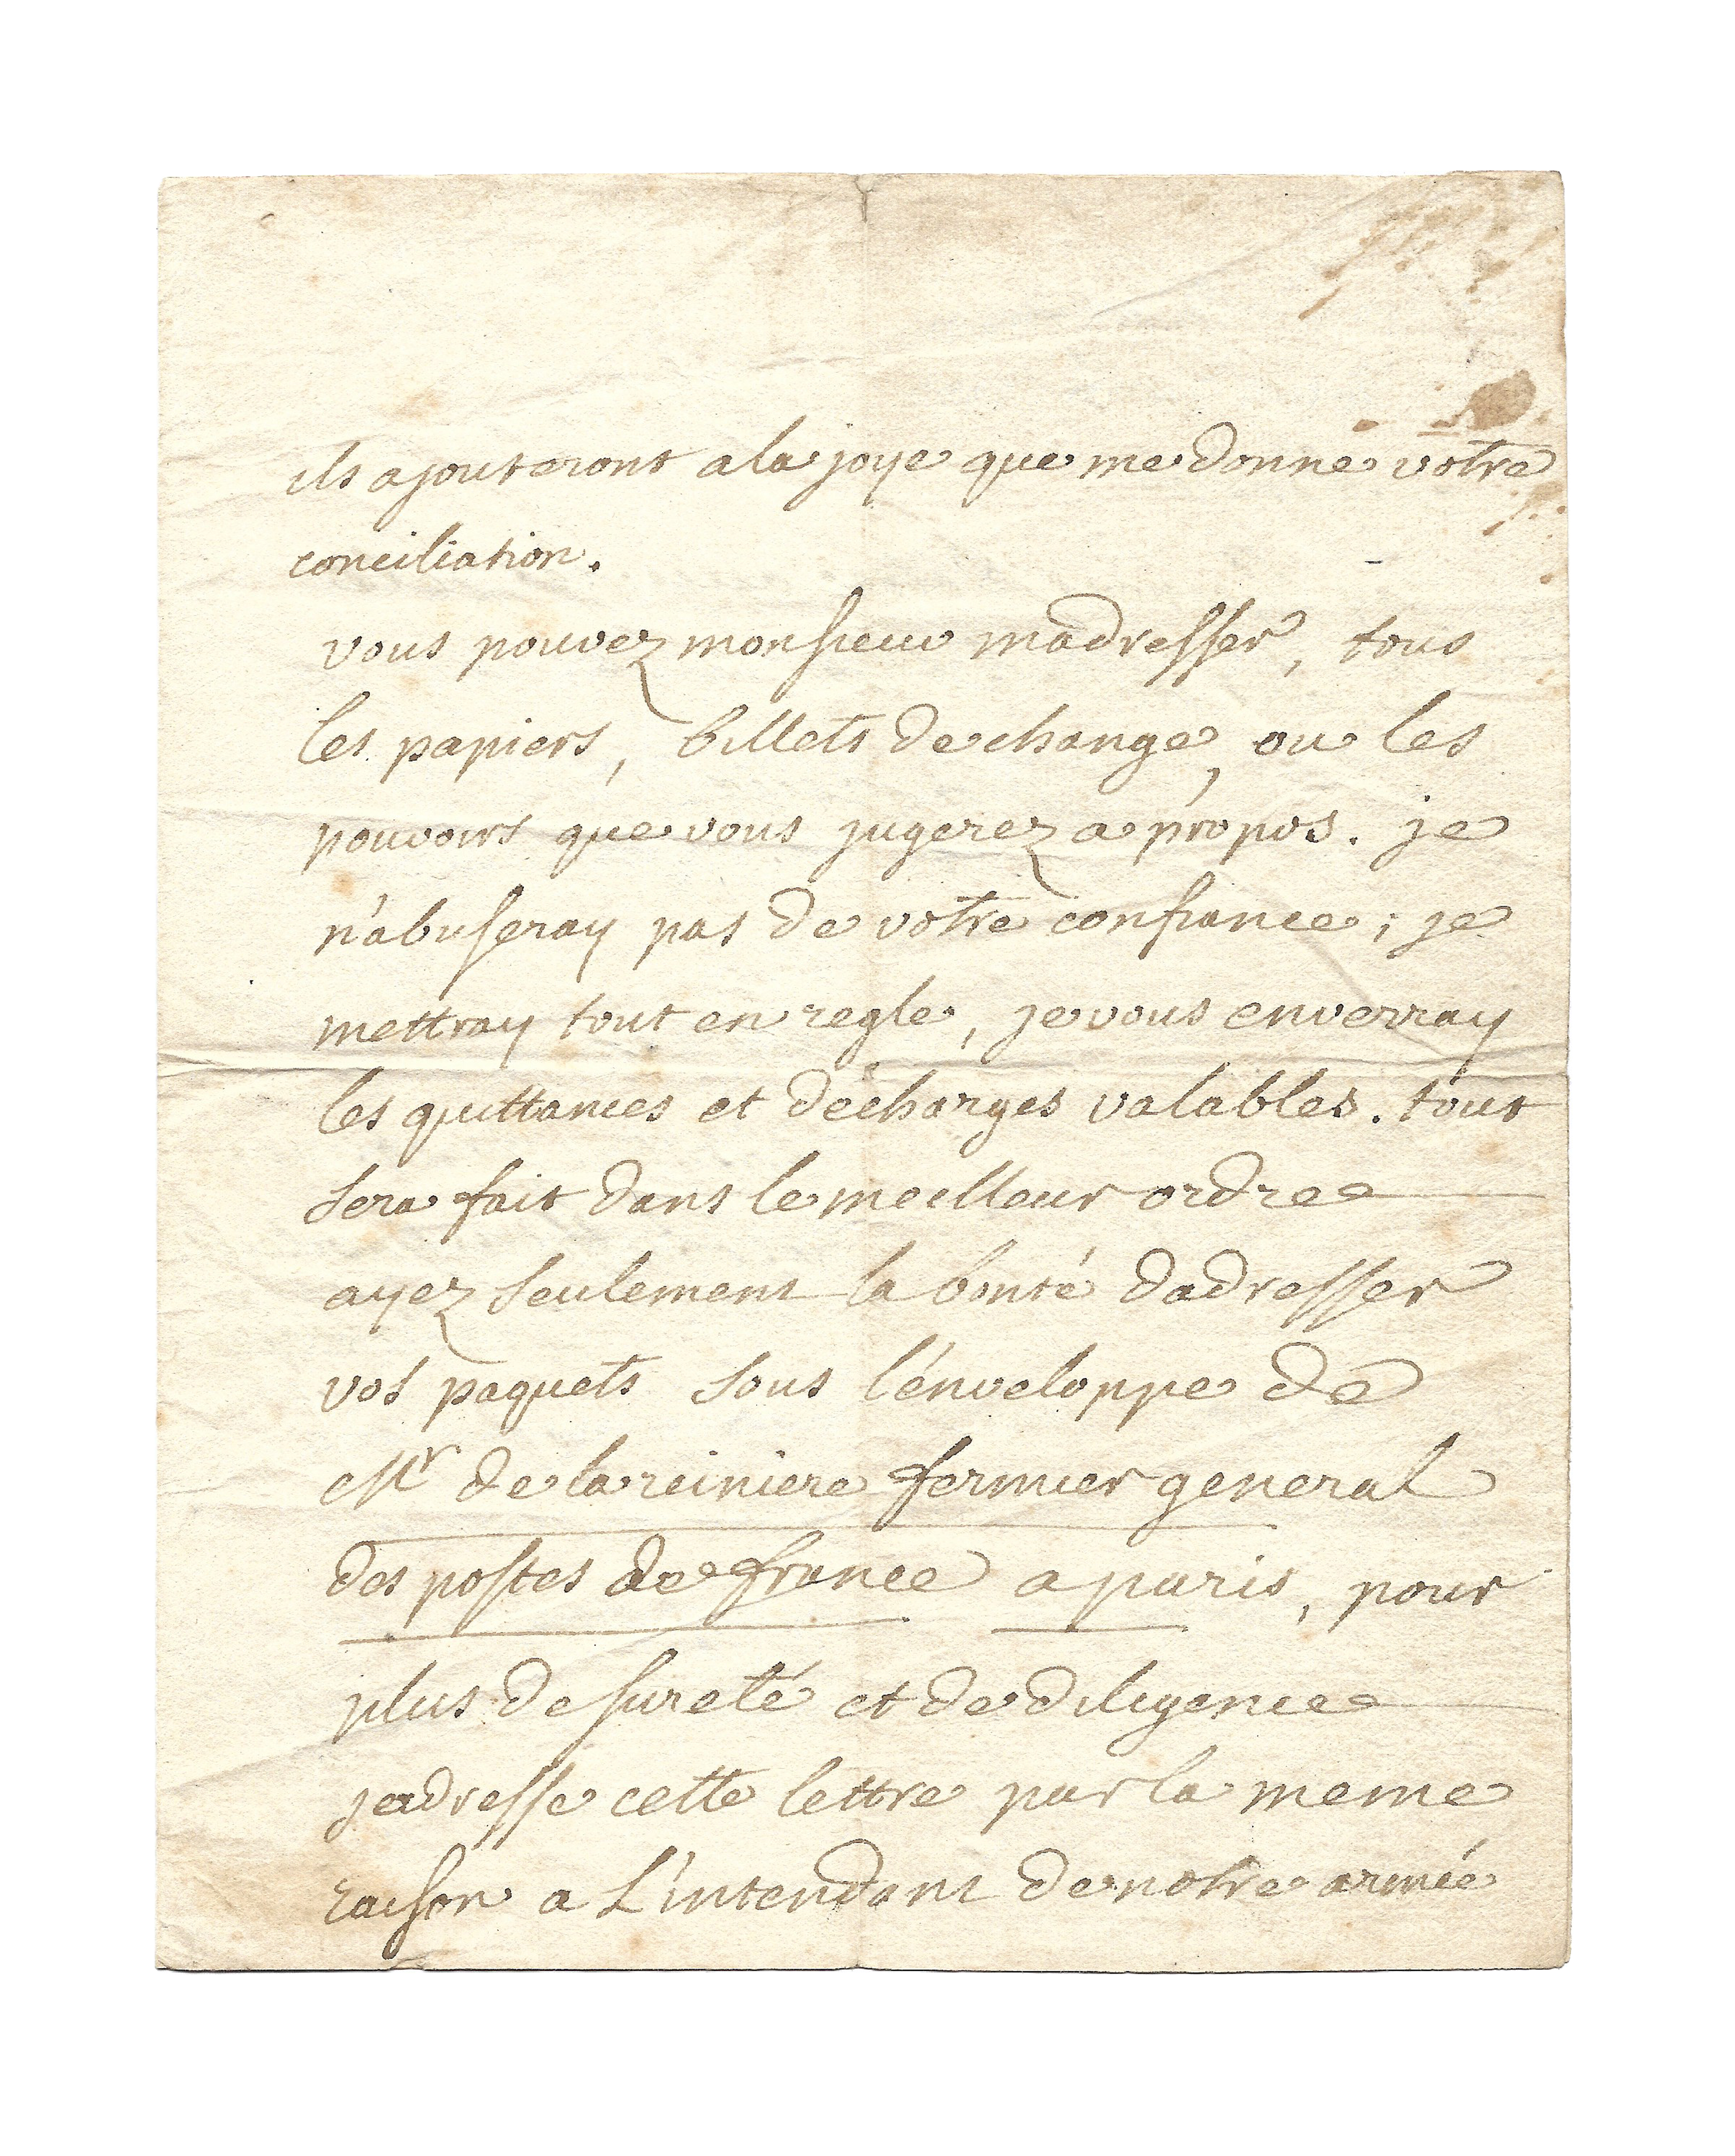 ils ajouteront a la joye que me donne votre
conciliation.
vous pouvez monsieur madresser, tous
les papiers, billets de change, ou les
pouvoirs que vous jugerez a propos. je
n'abuseray pas de votre confiance; je
mettray tout en regle, je vous enverray
les quittances et décharges valables. tout
sera fait dans le meilleur ordre
ayez seulement la bonté dadresser
vos paquets sous l'énveloppe de
Mr de la reiniere fermier general
des postes de france a paris, pour
plus de sureté et de diligence
jadresse cette lettre par la meme
raison a L'intendant de notre armée